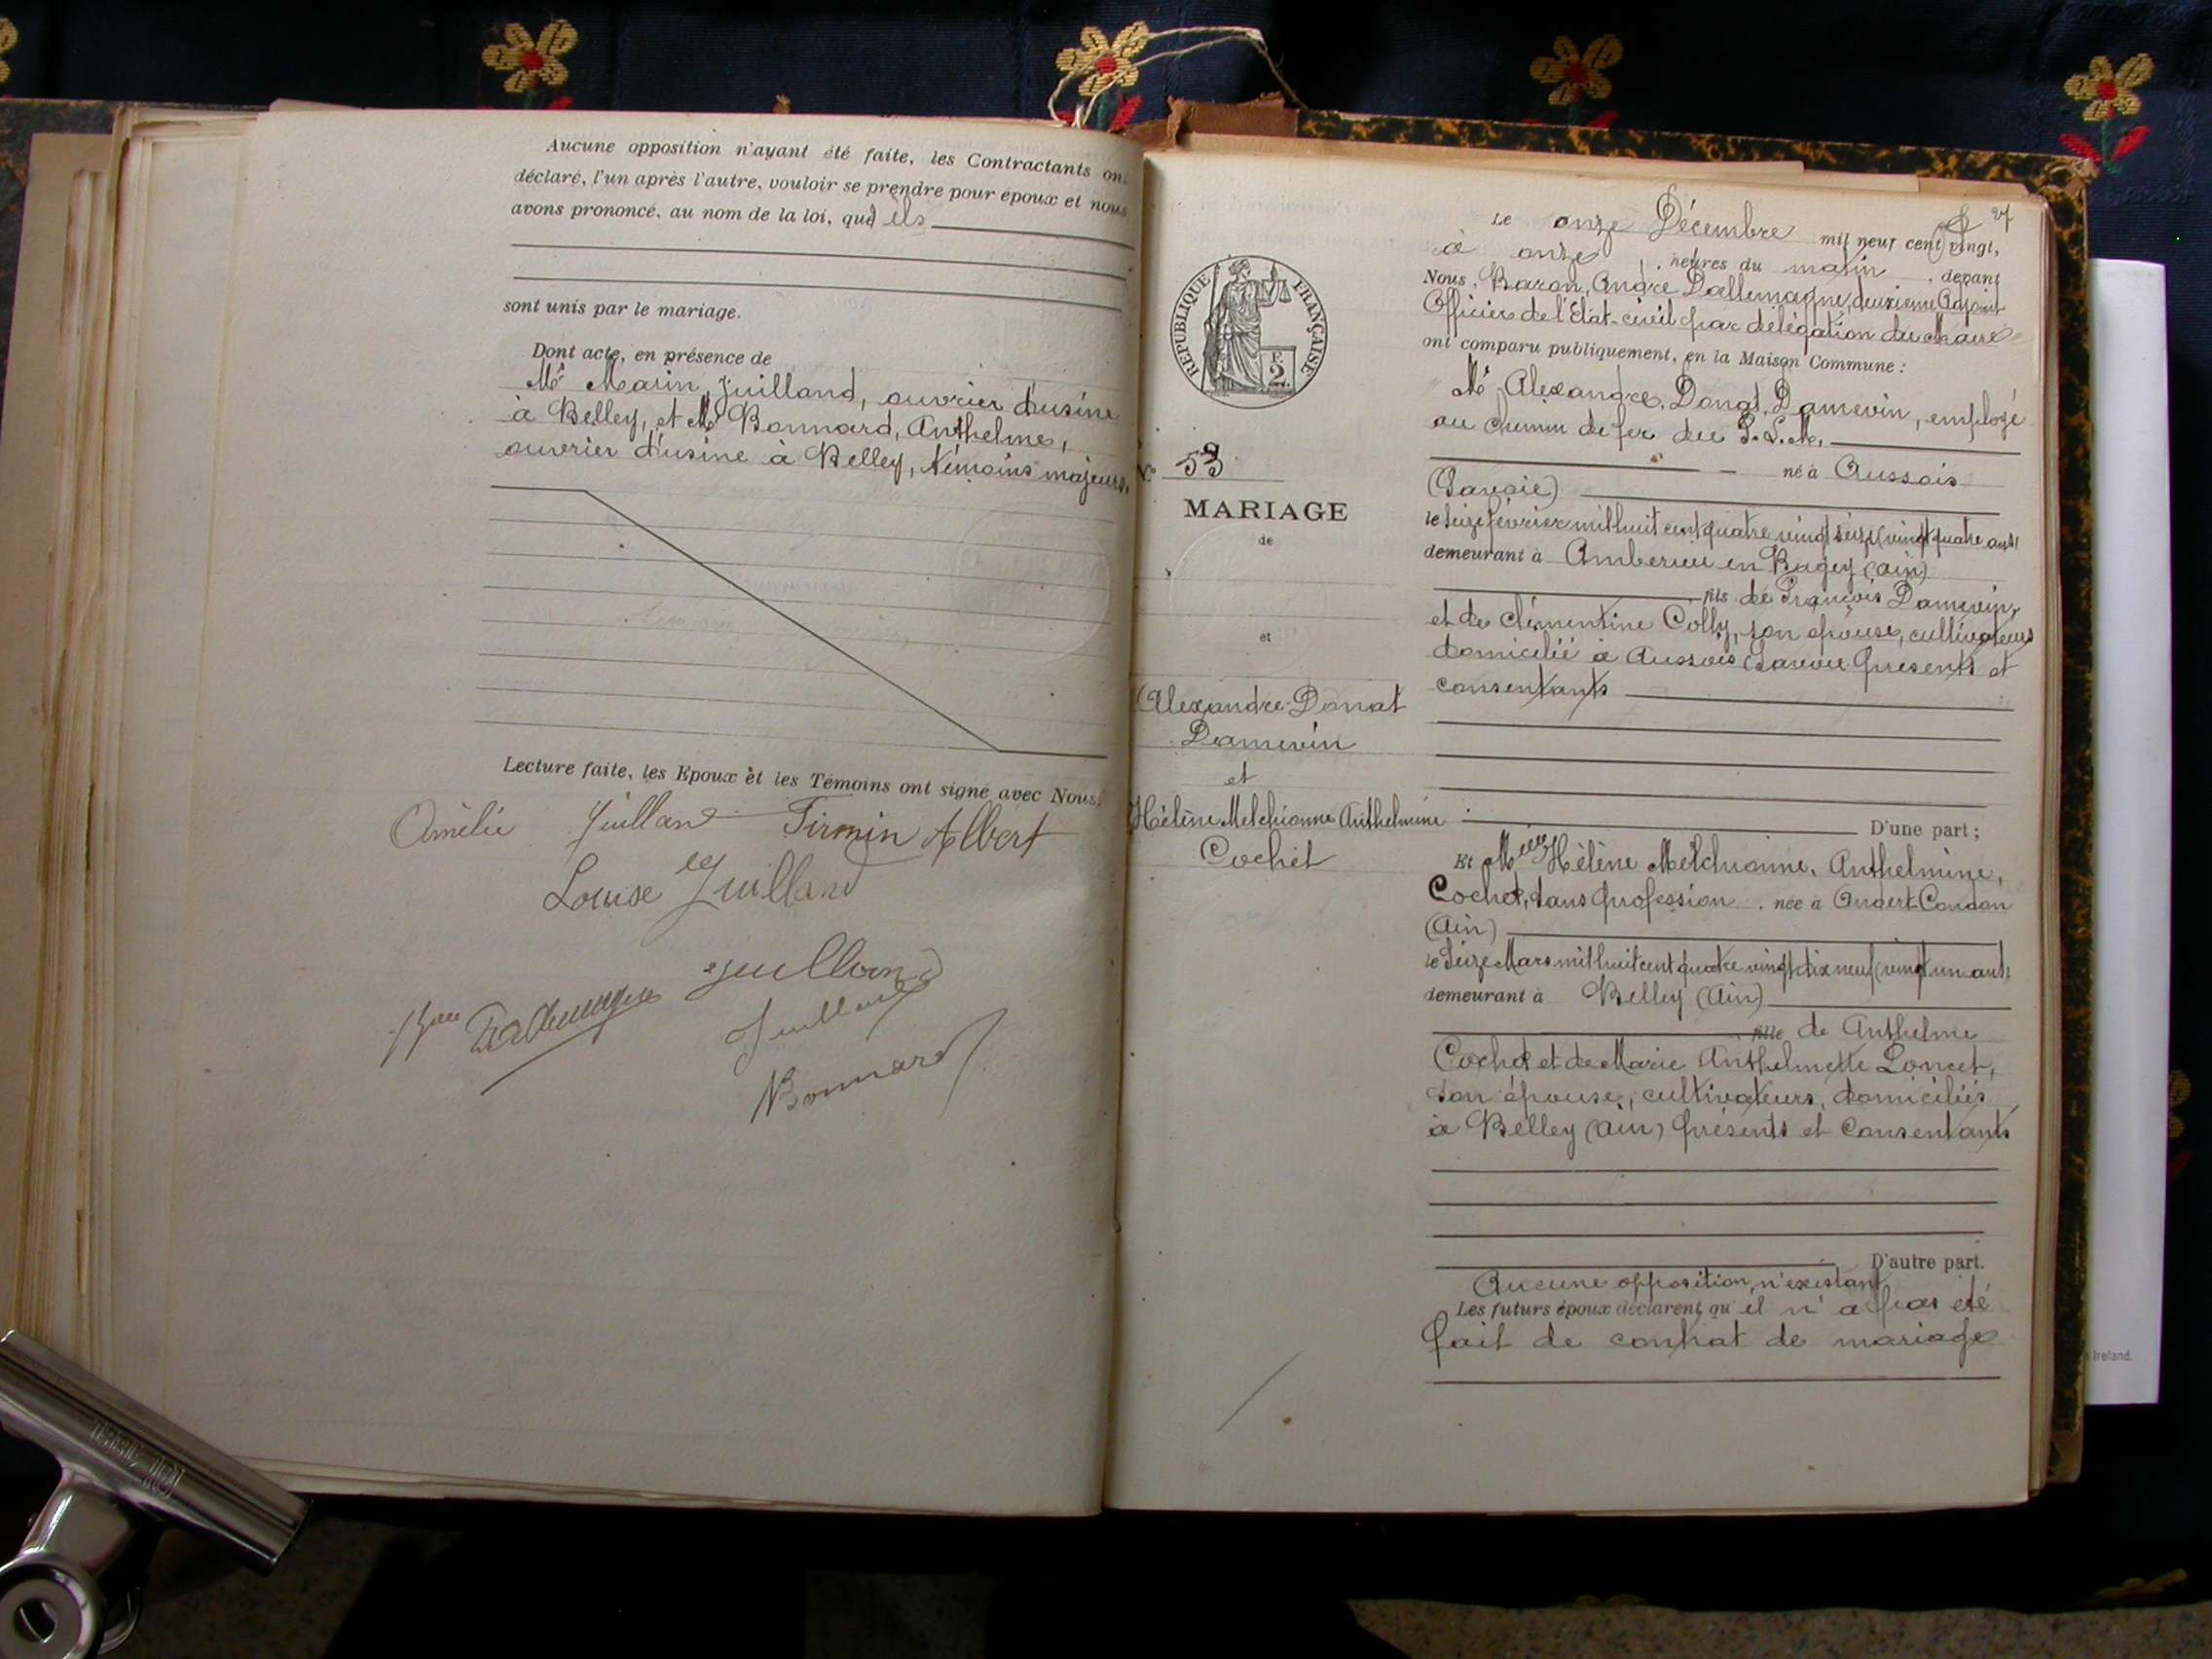 Aucune opposition n'ayant été faite, les Contractants on
déclaré, l'un après l'autre, vouloir se prendre pour époux et nous
avons prononcé, au nom de la loi, qu'ils
sont unis par le mariage.
Dont acte, en présence de
Mr Marin, Juilland, ouvrier d'usine
à Belley, et Mr Bonnard, Anthelme,
ouvrier d'usine à Belley, témoins majeurs.
Lecture faite, les Epoux et les Témoins ont signé avec Nous.
Amélie Juilland Firmin Albert
Louise Juilland
Juilland
Bon Dallemagne
Juilland
Bonnard
REPUBLIQUE FRANÇAISE
F.
2
N° 53
MARIAGE
de
et
Alexandre Donat
Damevin
et
Hélène Melchionne Anthelmine
Cochet
27
Le onze Décembre mil neuf cent vingt,
à onze heures du matin, devant
Nous, Baron, André Dallemagne, deuxième Adjoint
Officier de l'Etat-civil par délégation du Maire
ont comparu publiquement, en la Maison Commune :
Mr Alexandre, Donat, Damevin, employé
au chemin de fer du P. L. M.
né à Aussois
(Savoie)
le seize février mil huit cent quatre vingt seize (vingt quatre ans)
demeurant à Amberieu en Bugey (Ain)
fils de François Damevin,
et de Clémentine Colly, son épouse, cultivateurs
domicilié à Aussois (Savoie présents et
consentants
D'une part ;
Et Melle Hélène Melchionne, Anthelmine,
Cochet, sans profession, née à Andert-Condon
(Ain)
le Seize Mars mil huit cent quatre vingt dix neuf (vingt un ans)
demeurant à Belley (Ain)
fille de Anthelme
Cochet et de Marie Anthelmette Poncet,
son épouse, cultivateurs, domiciliés
à Belley (Ain) présents et consentants
D'autre part.
Aucune opposition n'existant
Les futurs époux déclarent qu'il n'a pas été
fait de contrat de mariage
Ireland.